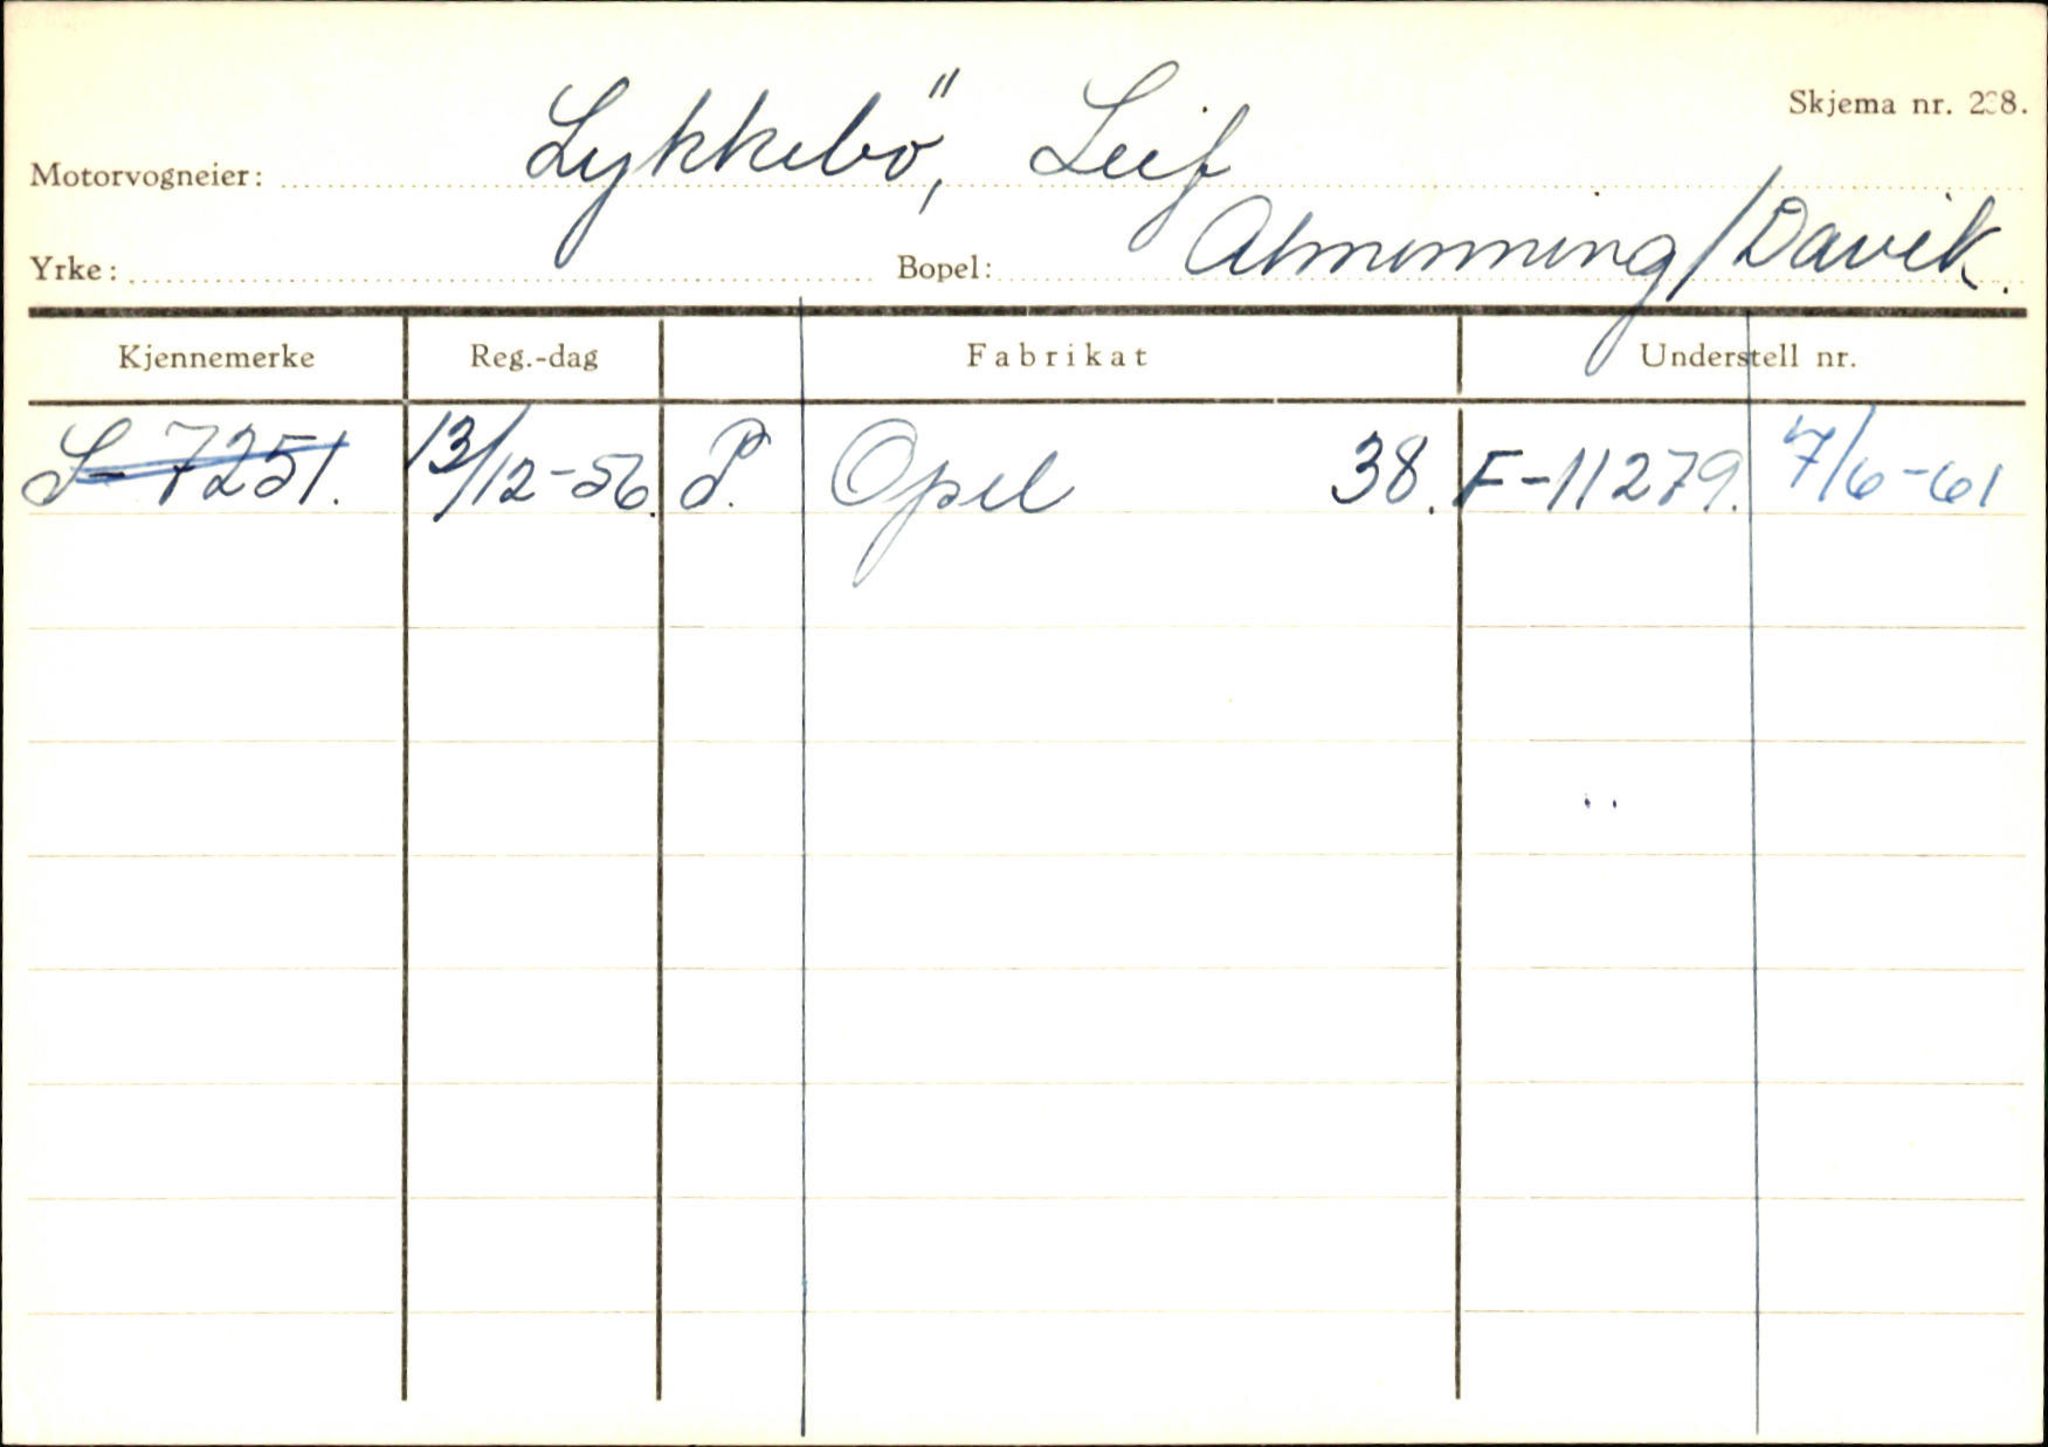 Skjema nr. 238.
Motorvogneier: Lykkebö, Leif
Yrke: Bopel: Almenning/Davik.
Kjennemerke Reg.-dag Fabrikat Understell nr.
S-7251. 13/12-56. P. Opel 38. F-11279. 7/6-61